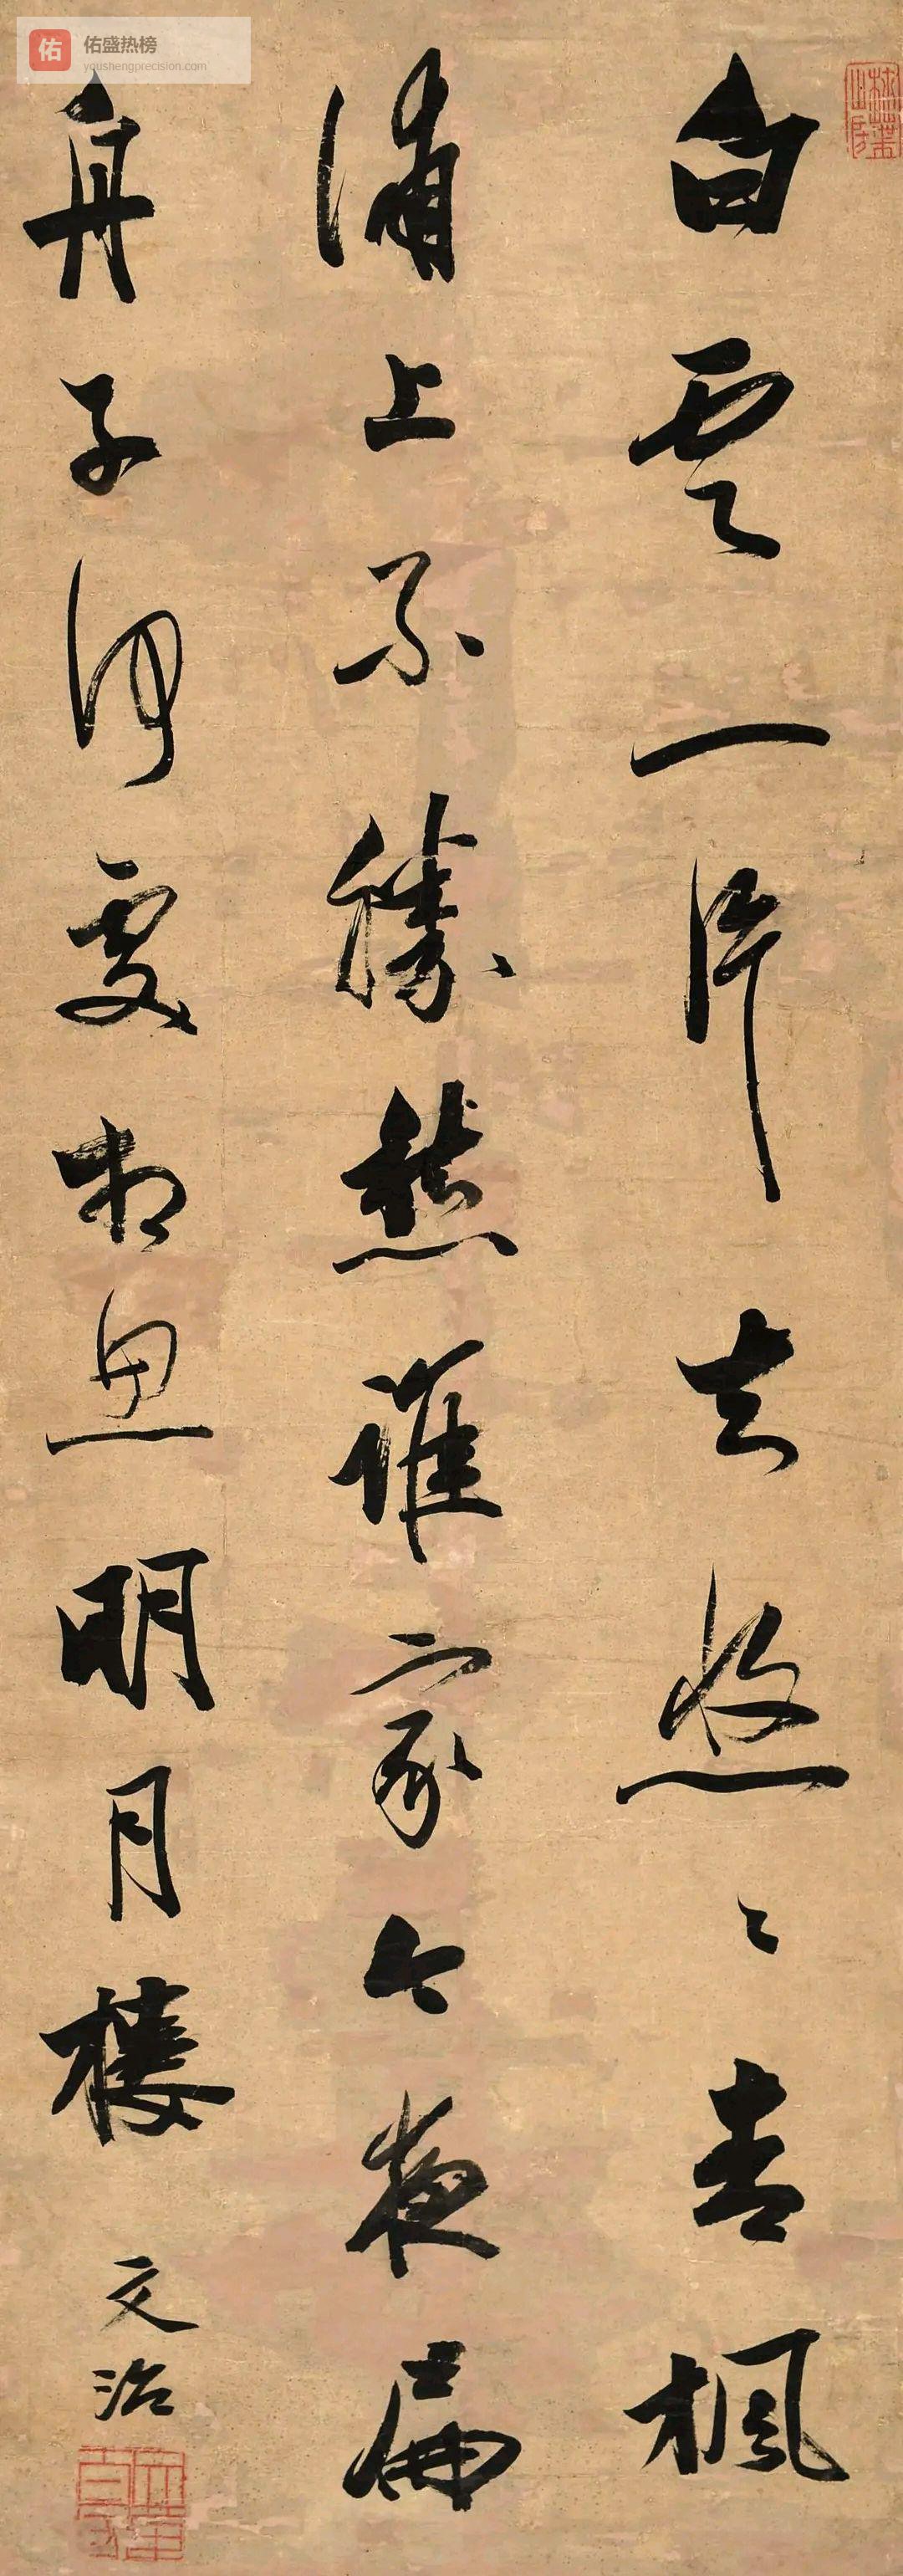 佑
佑盛热榜
youshengprecision.com
白雲一片去悠〻青楓
浦上不勝愁誰家今夜扁
舟子何處相思明月樓
文治